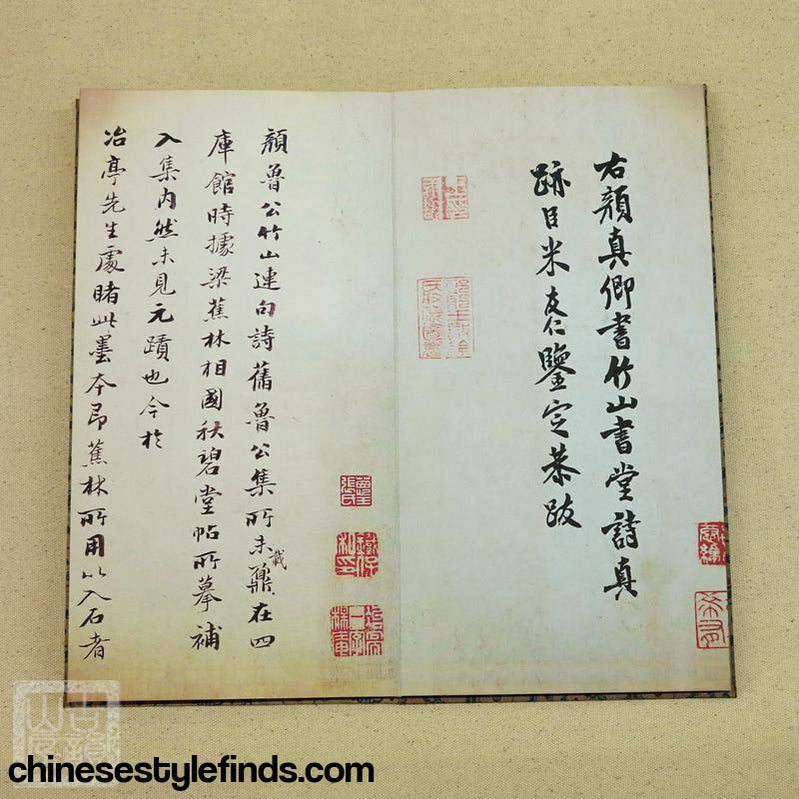 右顏真卿書竹山書堂詩真
跡臣米友仁鑒定恭跋
顏魯公竹山連句詩舊魯公集所未載在四
庫館時據梁蕉林相國秋碧堂帖所摹補
入集内然未見元蹟也今於
冶亭先生處睹此墨本即蕉林所用以入石者
chinesestylefinds.com